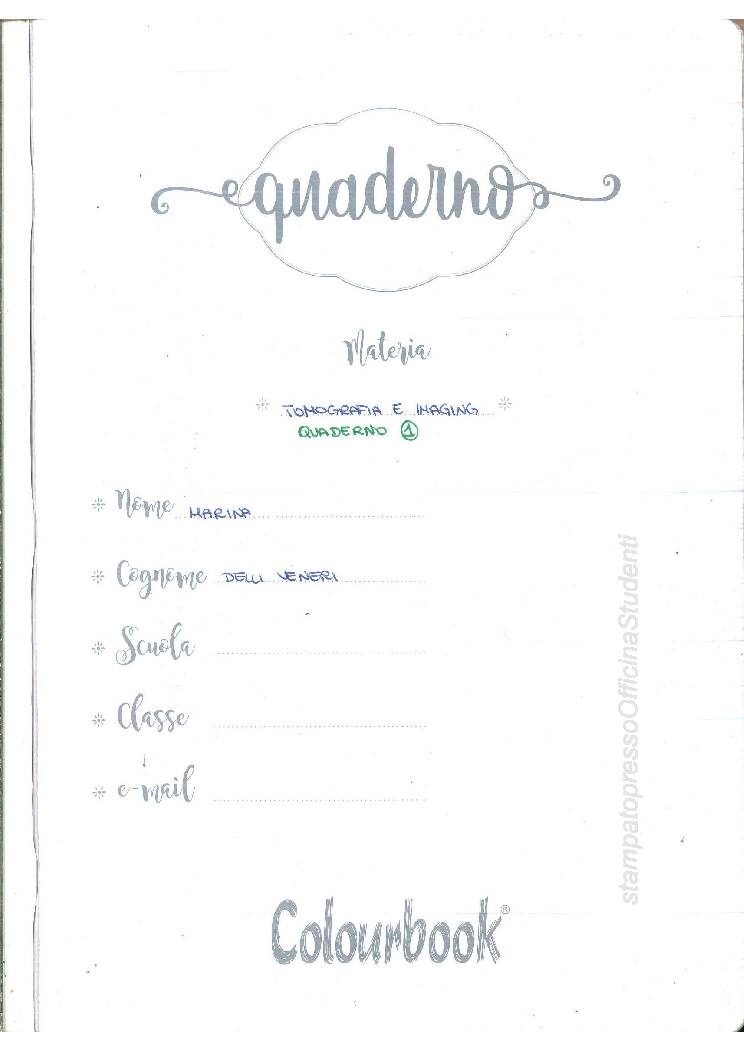 quaderno
Materia
TOMOGRAFIA E IMAGING
QUADERNO 1
Nome MARINA
Cognome DELLI VENERI
Scuola
Classe
e-mail
stampatopressoOfficinaStudenti
Colourbook®